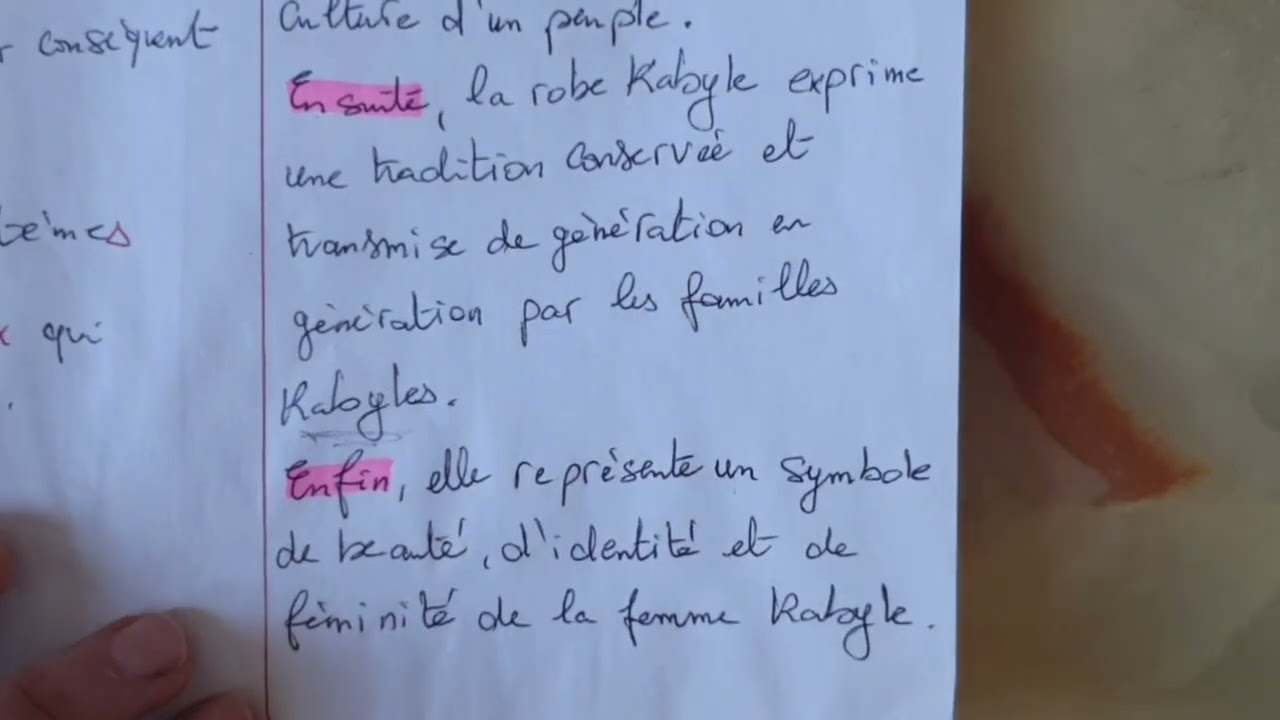 conséquent
culture d'un peuple.
Ensuite, la robe Kabyle exprime
une tradition conservée et
transmise de génération en
génération par les familles
Kabyles.
qui
Enfin, elle représente un symbole
de beauté, d'identité et de
féminité de la femme Kabyle.